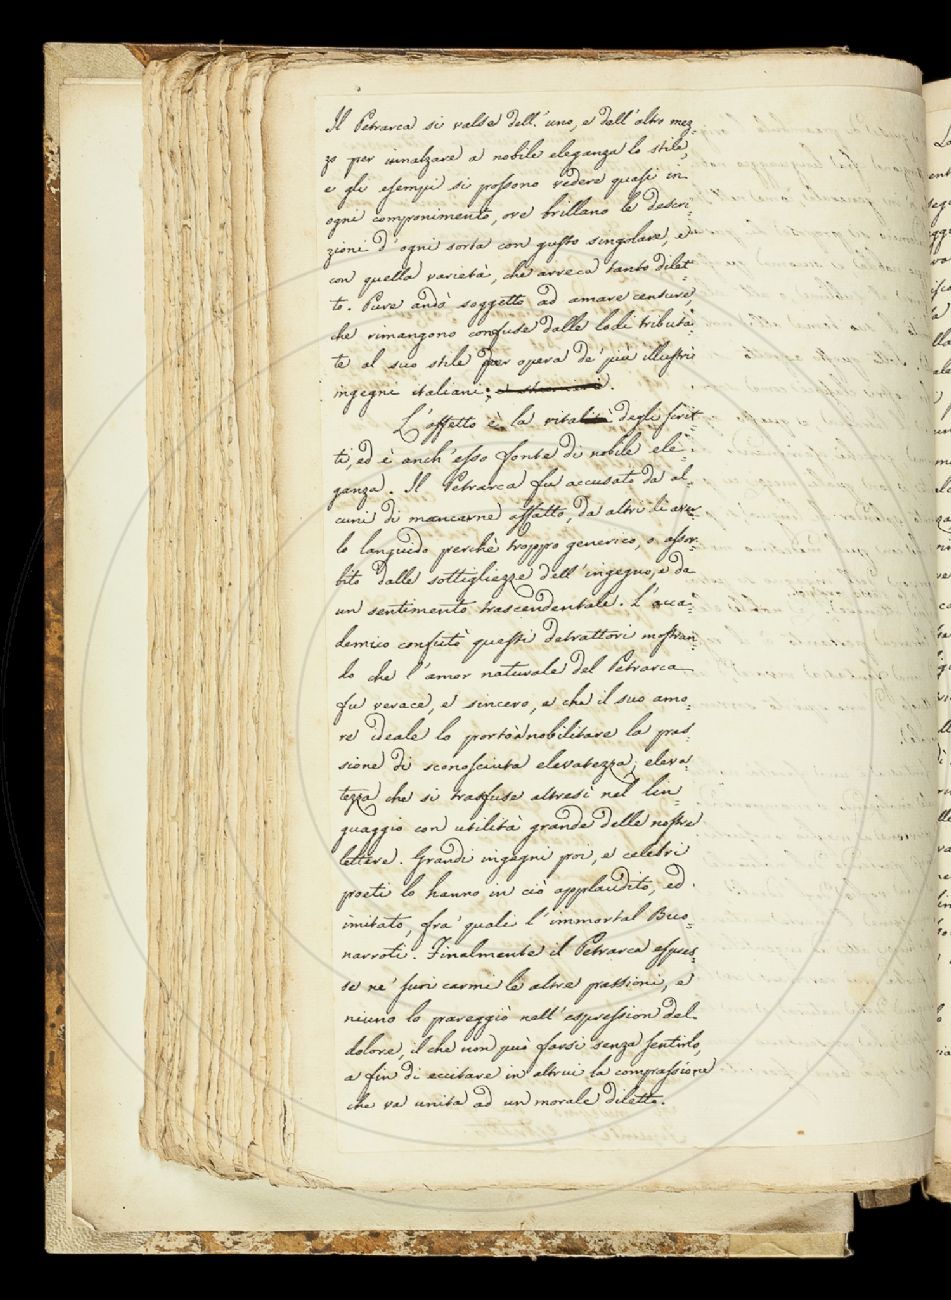 Il Petrarca si valse dell'uno, e dell'altro mez-
zo per innalzare a nobile eleganza lo stile,
e gli esempi si possono vedere quasi in
ogni componimento, ove brillano le descri-
zioni d'ogni sorta con gusto singolare, e
con quella varietà, che arreca tanto dilet
to. Pure andò soggetto ad amare censure,
che rimangono confuse dalle lodi tributa-
te al suo stile per opera de' più illustri
ingegni italiani.
L'affetto è la vita degli scrit
ti, ed è anch'esso fonte di nobile ele-
ganza. Il Petrarca fu accusato da al-
cuni di mancarne affatto, da altri di aver
lo languido perchè troppo generico, o assor-
bito dalle sottigliezze dell'ingegno, e da
un sentimento trascendentale. L'acca-
demico confutò questi detrattori mostran-
do che l'amor naturale del Petrarca
fu verace, e sincero, e che il suo amo-
re ideale lo portò a nobilitare la pas-
sione di sconosciuta elevatezza, eleva-
tezza che si trasfuse altresì nel lin-
guaggio con utilità grande delle nostre
lettere. Grandi ingegni poi, e celebri
poeti lo hanno in ciò applaudito, ed
imitato, fra' quali l'immortal Buo-
narroti. Finalmente il Petrarca espres-
se ne' suoi carmi le altre passioni, e
niuno lo pareggiò nell'espression del
dolore, il che non può farsi senza sentirlo,
a fin di eccitare in altrui la compassione
che va unita ad un morale diletto.